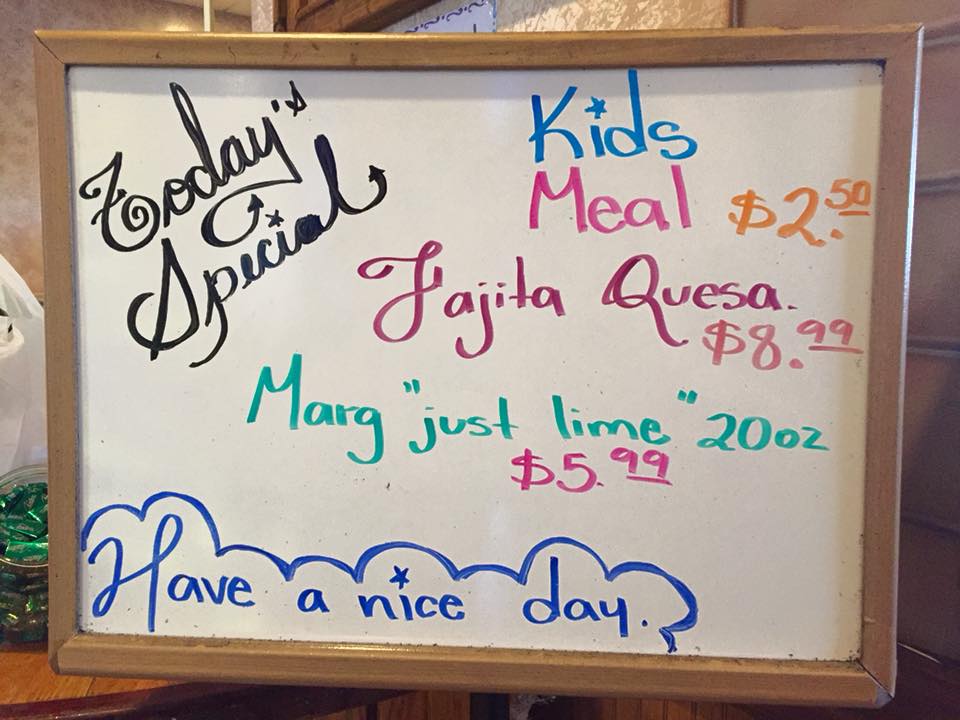 Today's
Special
Kids
Meal $2.50
Fajita Quesa.
$8.99
Marg "just lime" 20oz
$5.99
Have a nice day.